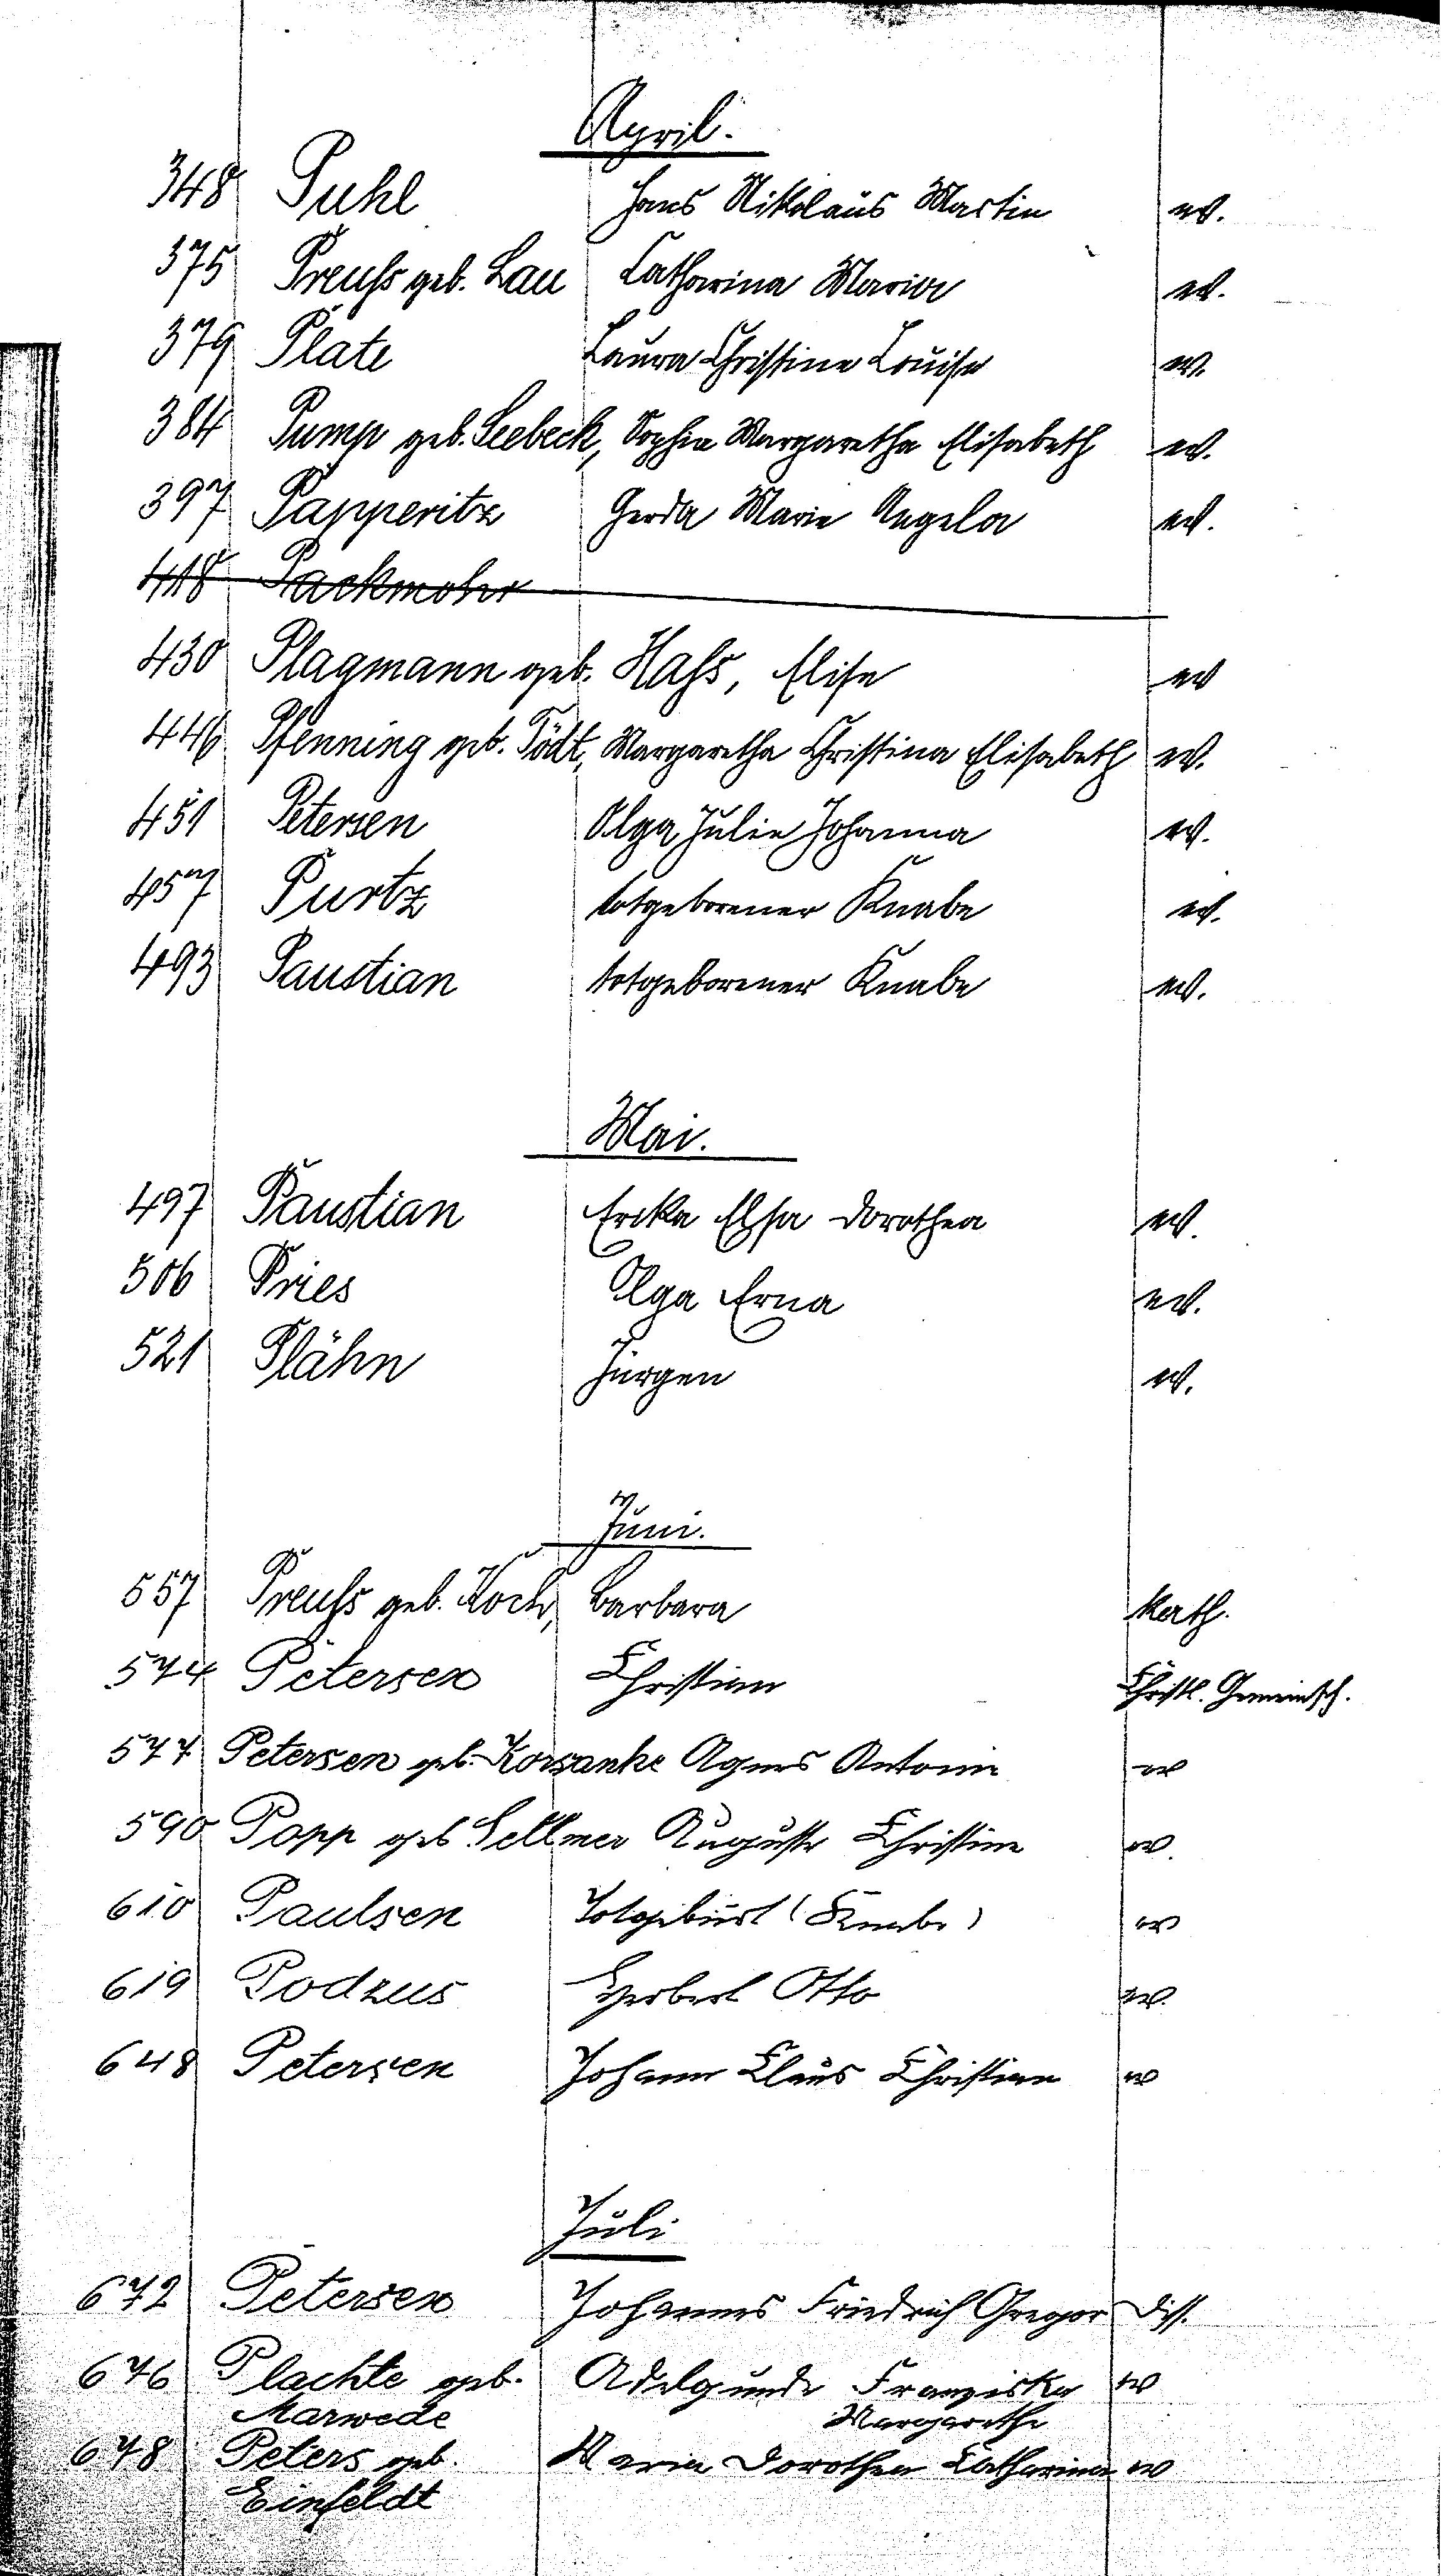 April.
348 Puhl Hans Nikolaus Martin ev.
375 Preuß geb. Lau Catharina Maria ev.
379 Plate Laura Christine Louise ev.
384 Pump geb. Seebeck, Sophie Margaretha Elisabeth ev.
397 Papperitz Gerda Marie Angela ev.
418 Packmohr
430 Plagmann geb. Haß, Elise ev
446 Pfenning geb. Tödt, Margaretha Christina Elisabeth ev.
451 Petersen Olga Julie Johanna ev.
457 Purtz totgeborener Knabe ev.
493 Paustian totgeborener Knabe ev.
Mai.
497 Paustian Erika Elsa Dorothea ev.
506 Pries Olga Erna ev.
521 Plähn Jürgen ev.
Juni.
557 Preuß geb. Koch, Barbara kath.
574 Petersen Christian Christl. Gemeinsch.
577 Petersen geb. Korsanke Agnes Antonie ev
590 Popp geb Sellmer Auguste Christine ev.
610 Paulsen Totgeburt (Knabe) ev
619 Podzus Herbert Otto ev.
648 Petersen Johann Claus Christian ev
Juli
672 Petersen Johannes Friedrich Gregor Diss.
676 Plachte geb. Adelgunde Franziska ev
Marwede Margarethe
678 Peters geb. Maria Dorothea Catharina ev
Einfeldt